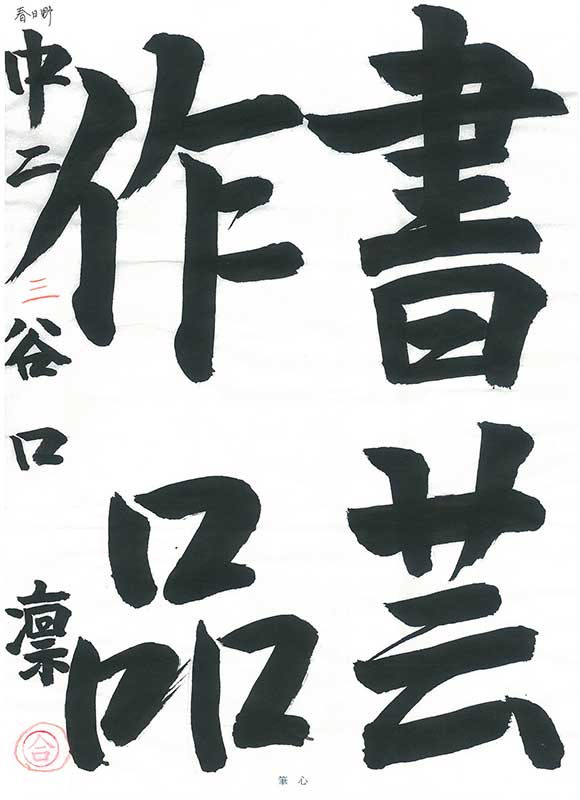 書芸
作品
春日野
中二 谷口 凛
三
合
筆心